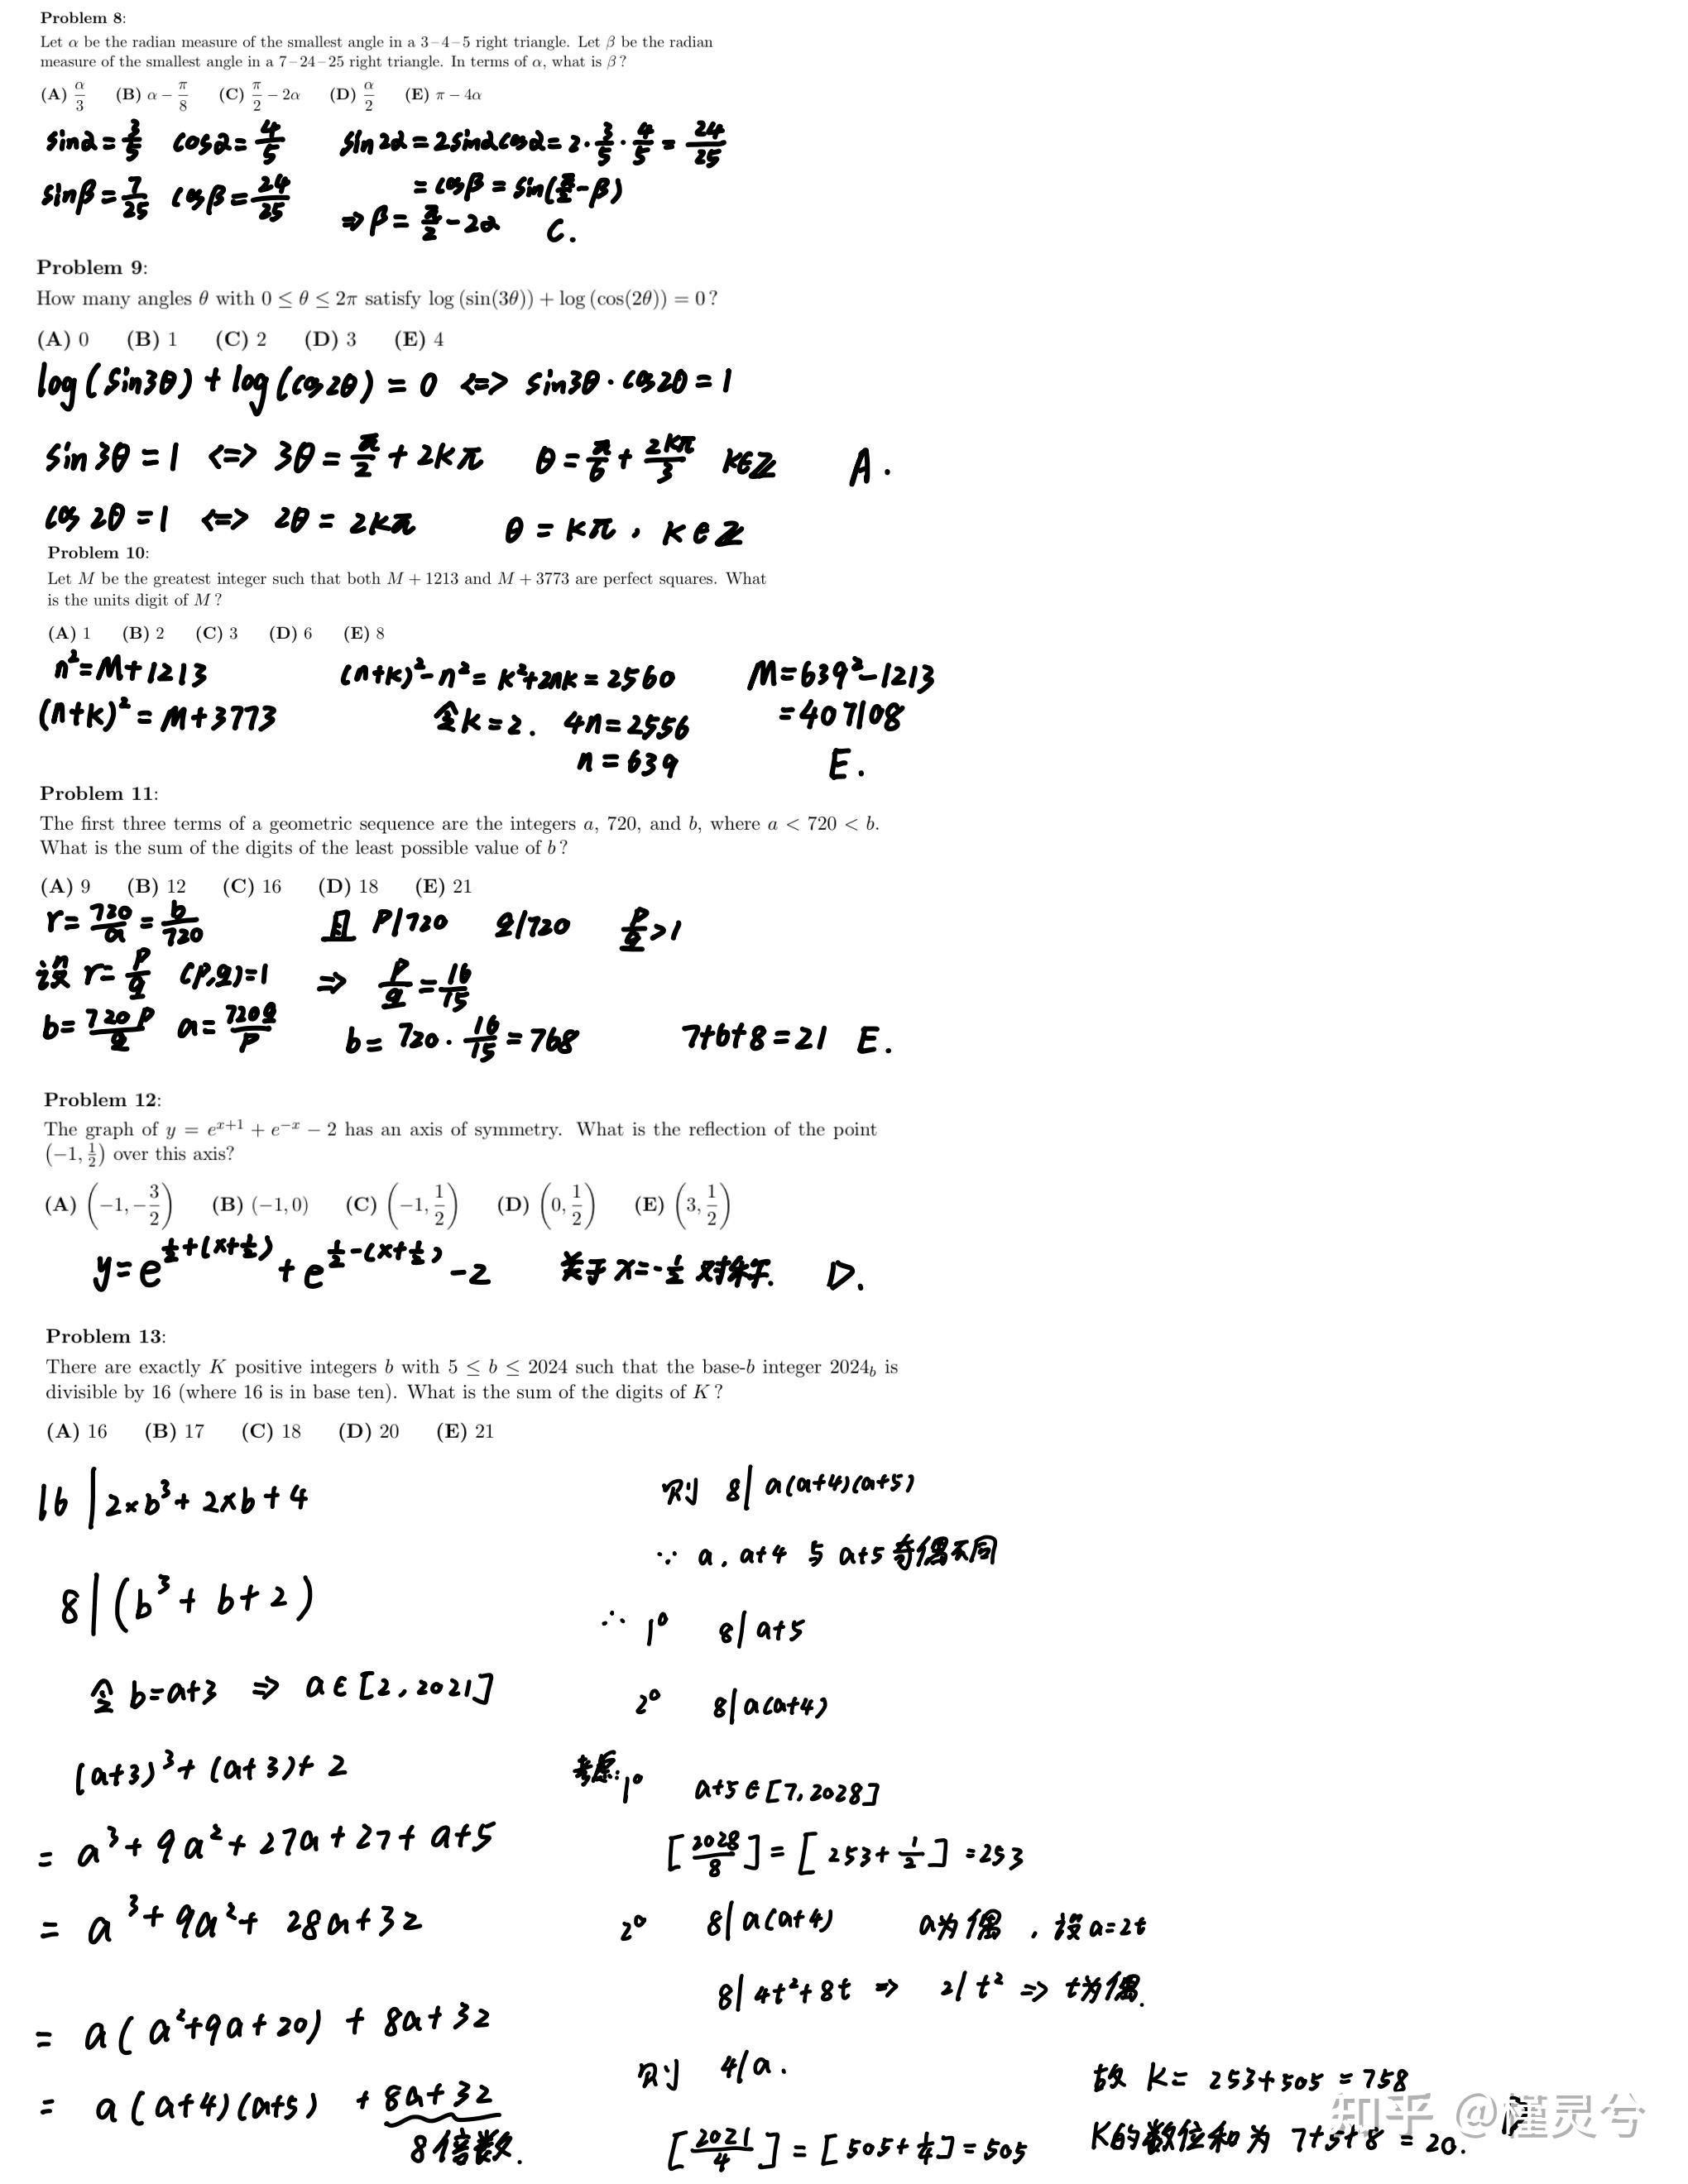 Problem 8:
Let α be the radian measure of the smallest angle in a 3 – 4 – 5 right triangle. Let β be the radian
measure of the smallest angle in a 7 – 24 – 25 right triangle. In terms of α, what is β?
(A) α/3 (B) α − π/8 (C) π/2 − 2α (D) α/2 (E) π − 4α
sinα = 3/5 cosα = 4/5 sin2α = 2sinαcosα = 2·3/5·4/5 = 24/25
sinβ = 7/25 cosβ = 24/25 = cosβ = sin(π/2 − β)
⇒ β = π/2 − 2α C.
Problem 9:
How many angles θ with 0 ≤ θ ≤ 2π satisfy log (sin(3θ)) + log (cos(2θ)) = 0?
(A) 0 (B) 1 (C) 2 (D) 3 (E) 4
log(sin3θ) + log(cos2θ) = 0 <=> sin3θ·cos2θ = 1
sin3θ = 1 <=> 3θ = π/2 + 2kπ θ = π/6 + 2kπ/3 k∈Z A.
cos2θ = 1 <=> 2θ = 2kπ θ = kπ, k∈Z
Problem 10:
Let M be the greatest integer such that both M + 1213 and M + 3773 are perfect squares. What
is the units digit of M?
(A) 1 (B) 2 (C) 3 (D) 6 (E) 8
n² = M+1213 (n+k)² − n² = k²+2nk = 2560 M = 639² − 1213
(n+k)² = M+3773 令k=2. 4n = 2556 = 407108
n = 639 E.
Problem 11:
The first three terms of a geometric sequence are the integers a, 720, and b, where a < 720 < b.
What is the sum of the digits of the least possible value of b?
(A) 9 (B) 12 (C) 16 (D) 18 (E) 21
r = 720/a = b/720 且 p|720 q|720 p/q > 1
设 r = p/q (p,q)=1 ⇒ p/q = 16/15
b = 720p/q a = 720q/p b = 720·16/15 = 768 7+6+8 = 21 E.
Problem 12:
The graph of y = e^{x+1} + e^{−x} − 2 has an axis of symmetry. What is the reflection of the point
(−1, 1/2) over this axis?
(A) (−1, −3/2) (B) (−1, 0) (C) (−1, 1/2) (D) (0, 1/2) (E) (3, 1/2)
y = e^{1/2+(x+1/2)} + e^{1/2−(x+1/2)} − 2 关于 x = −1/2 对称. D.
Problem 13:
There are exactly K positive integers b with 5 ≤ b ≤ 2024 such that the base-b integer 2024_b is
divisible by 16 (where 16 is in base ten). What is the sum of the digits of K?
(A) 16 (B) 17 (C) 18 (D) 20 (E) 21
16 | 2×b³ + 2×b + 4
8 | (b³ + b + 2)
令 b=a+3 ⇒ a∈[2, 2021]
(a+3)³ + (a+3) + 2
= a³ + 9a² + 27a + 27 + a+5
= a³ + 9a² + 28a + 32
= a(a²+9a+20) + 8a+32
= a(a+4)(a+5) + 8a+32
8倍数.
则 8 | a(a+4)(a+5)
∵ a, a+4 与 a+5 奇偶不同
∴ 1° 8 | a+5
2° 8 | a(a+4)
考虑: 1° a+5∈[7, 2028]
[2028/8] = [253 + 1/2] = 253
2° 8 | a(a+4) a为偶, 设a=2t
8 | 4t²+8t ⇒ 2 | t² ⇒ t为偶.
则 4 | a.
[2021/4] = [505 + 1/4] = 505
故 K = 253+505 = 758
K的数位和为 7+5+8 = 20.
知乎 @槿灵兮